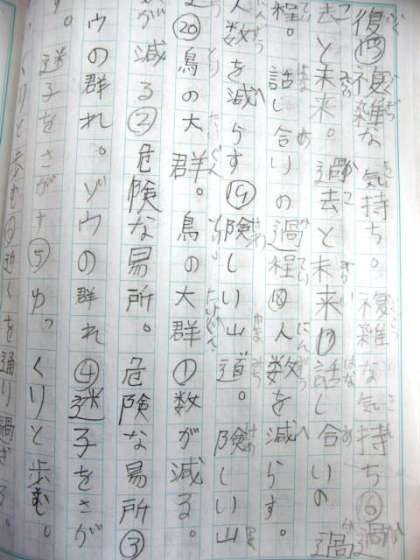 復⑮複雑な気持ち。複雑な気持ち⑯過
去と未来。過去と未来⑰話し合いの過
程。話し合いの過程⑱人数を減らす。
人数を減らす⑲険しい山道。険しい山
道⑳鳥の大群。鳥の大群①数が減る。
数が減る②危険な易所。危険な易所③
ゾウの群れ。ゾウの群れ④迷子をさが
す。迷子をさがす⑤ゆっくりと歩む。
ゆっくりと歩む⑥近くを通り過ぎる。